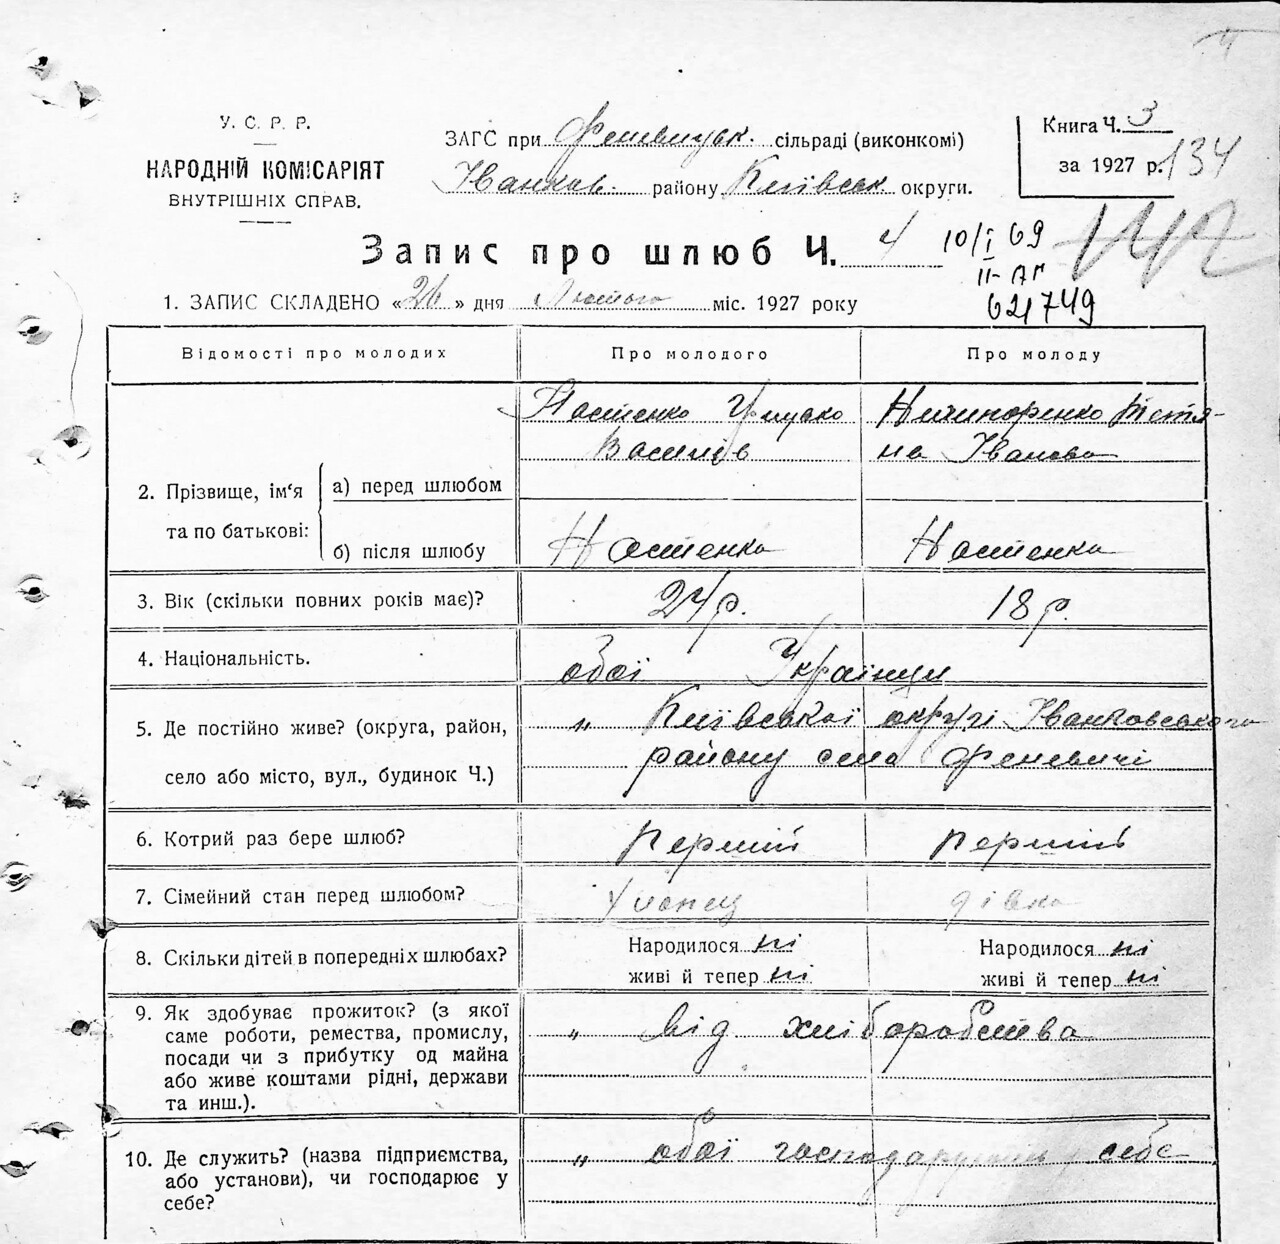 У. С. Р. Р.
НАРОДНІЙ КОМІСАРІЯТ
ВНУТРІШНІХ СПРАВ.
ЗАГС при Феневицьк. сільраді (виконкомі)
Іванков. району Київськ округи.
Книга Ч. 3
за 1927 р. 134
Запис про шлюб Ч. 4
10/I 69
II-АМ
621749
142
1. ЗАПИС СКЛАДЕНО «26» дня Лютого міс. 1927 року
Відомості про молодих Про молодого Про молоду
Настенко Грицько Ничипоренко Тетя-
Василів на Іванова
2. Прізвище, ім'я та по батькові:
а) перед шлюбом
б) після шлюбу Настенко Настенко
3. Вік (скільки повних років має)? 24 р. 18 р.
4. Національність. обої Українци
5. Де постійно живе? (округа, район, „ Київської округі Іванковського
село або місто, вул., будинок Ч.) району села Феневичі
6. Котрий раз бере шлюб? Перший перший
7. Сімейний стан перед шлюбом? Хлопец дівка
8. Скільки дітей в попередніх шлюбах? Народилося ні Народилося ні
живі й тепер ні живі й тепер ні
9. Як здобуває прожиток? (з якої „ Від хліборобства
саме роботи, ремества, промислу,
посади чи з прибутку од майна
або живе коштами рідні, держави
та инш.).
10. Де служить? (назва підприємства, „ обої господарують у себе
або установи), чи господарює у
себе?